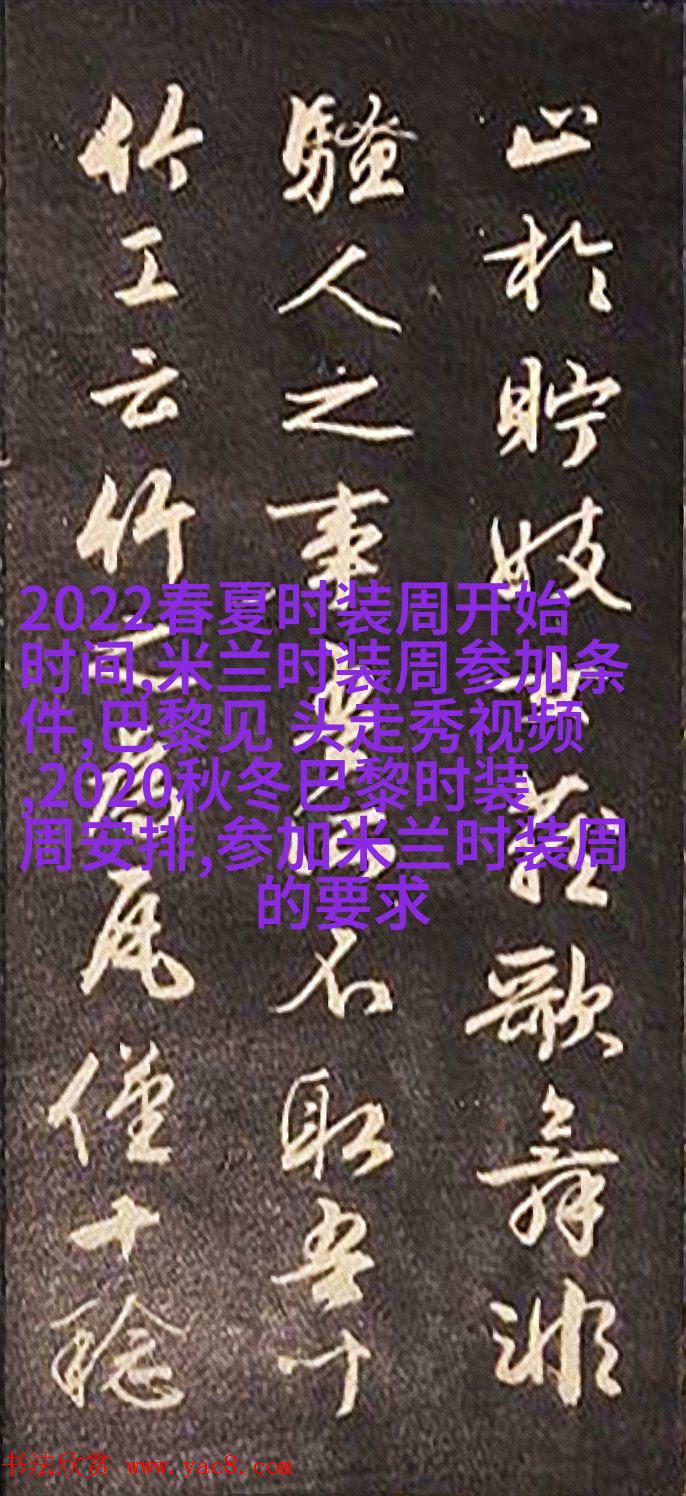 止於貯妓女藏歌舞非
騷人之事吾所不取吾
竹工云竹之為瓦僅十稔
2022春夏时装周开始
时间,米兰时装周参加条
件,巴黎见 头走秀视频
,2020秋冬巴黎时装
周安排,参加米兰时装周
的要求
书法欣赏 www.yac8.com